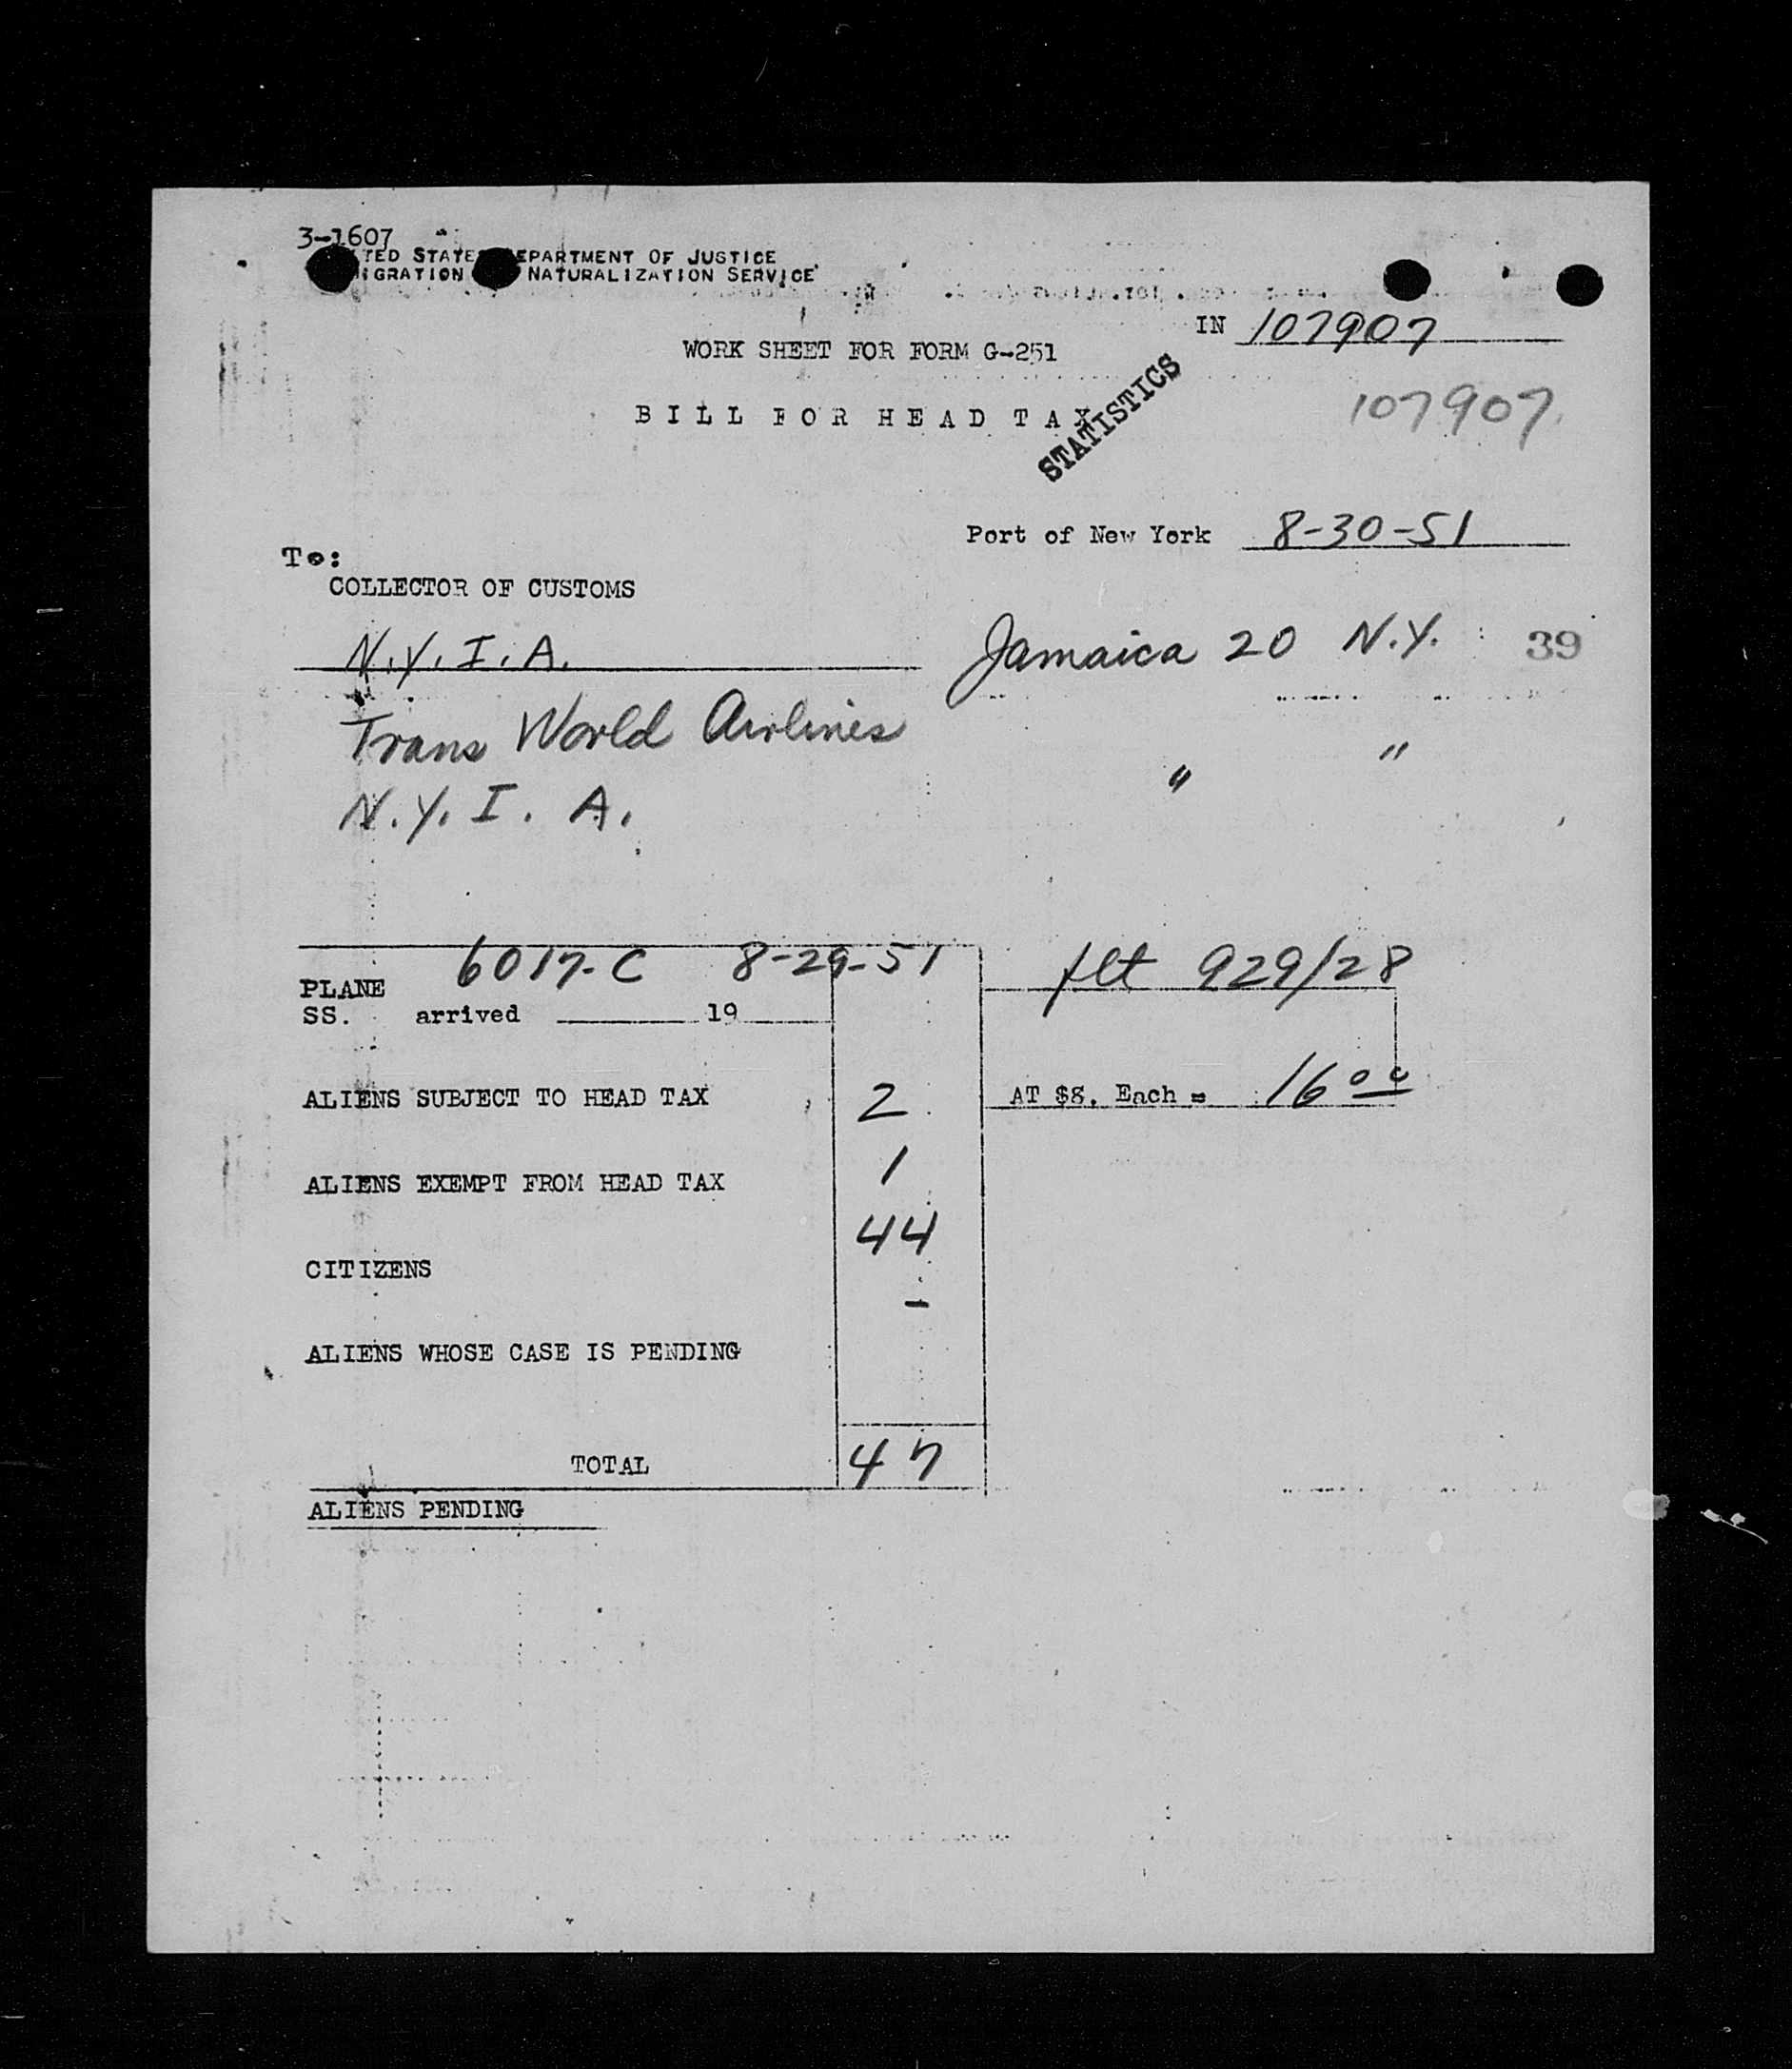 3-1607
TED STATES DEPARTMENT OF JUSTICE
IGRATION NATURALIZATION SERVICE
IN 107907
WORK SHEET FOR FORM G-251
107907
BILL FOR HEAD TAX
STATISTICS
Port of New York 8-30-51
To:
COLLECTOR OF CUSTOMS
N.Y.I.A. Jamaica 20 N.Y. 39
Trans World Airlines " "
N.Y.I.A.
6017-C 8-29-51 flt 929/28
PLANE
SS. arrived 19
ALIENS SUBJECT TO HEAD TAX 2 AT $8. Each = 16 00
ALIENS EXEMPT FROM HEAD TAX 1
CITIZENS 44
ALIENS WHOSE CASE IS PENDING -
TOTAL 47
ALIENS PENDING